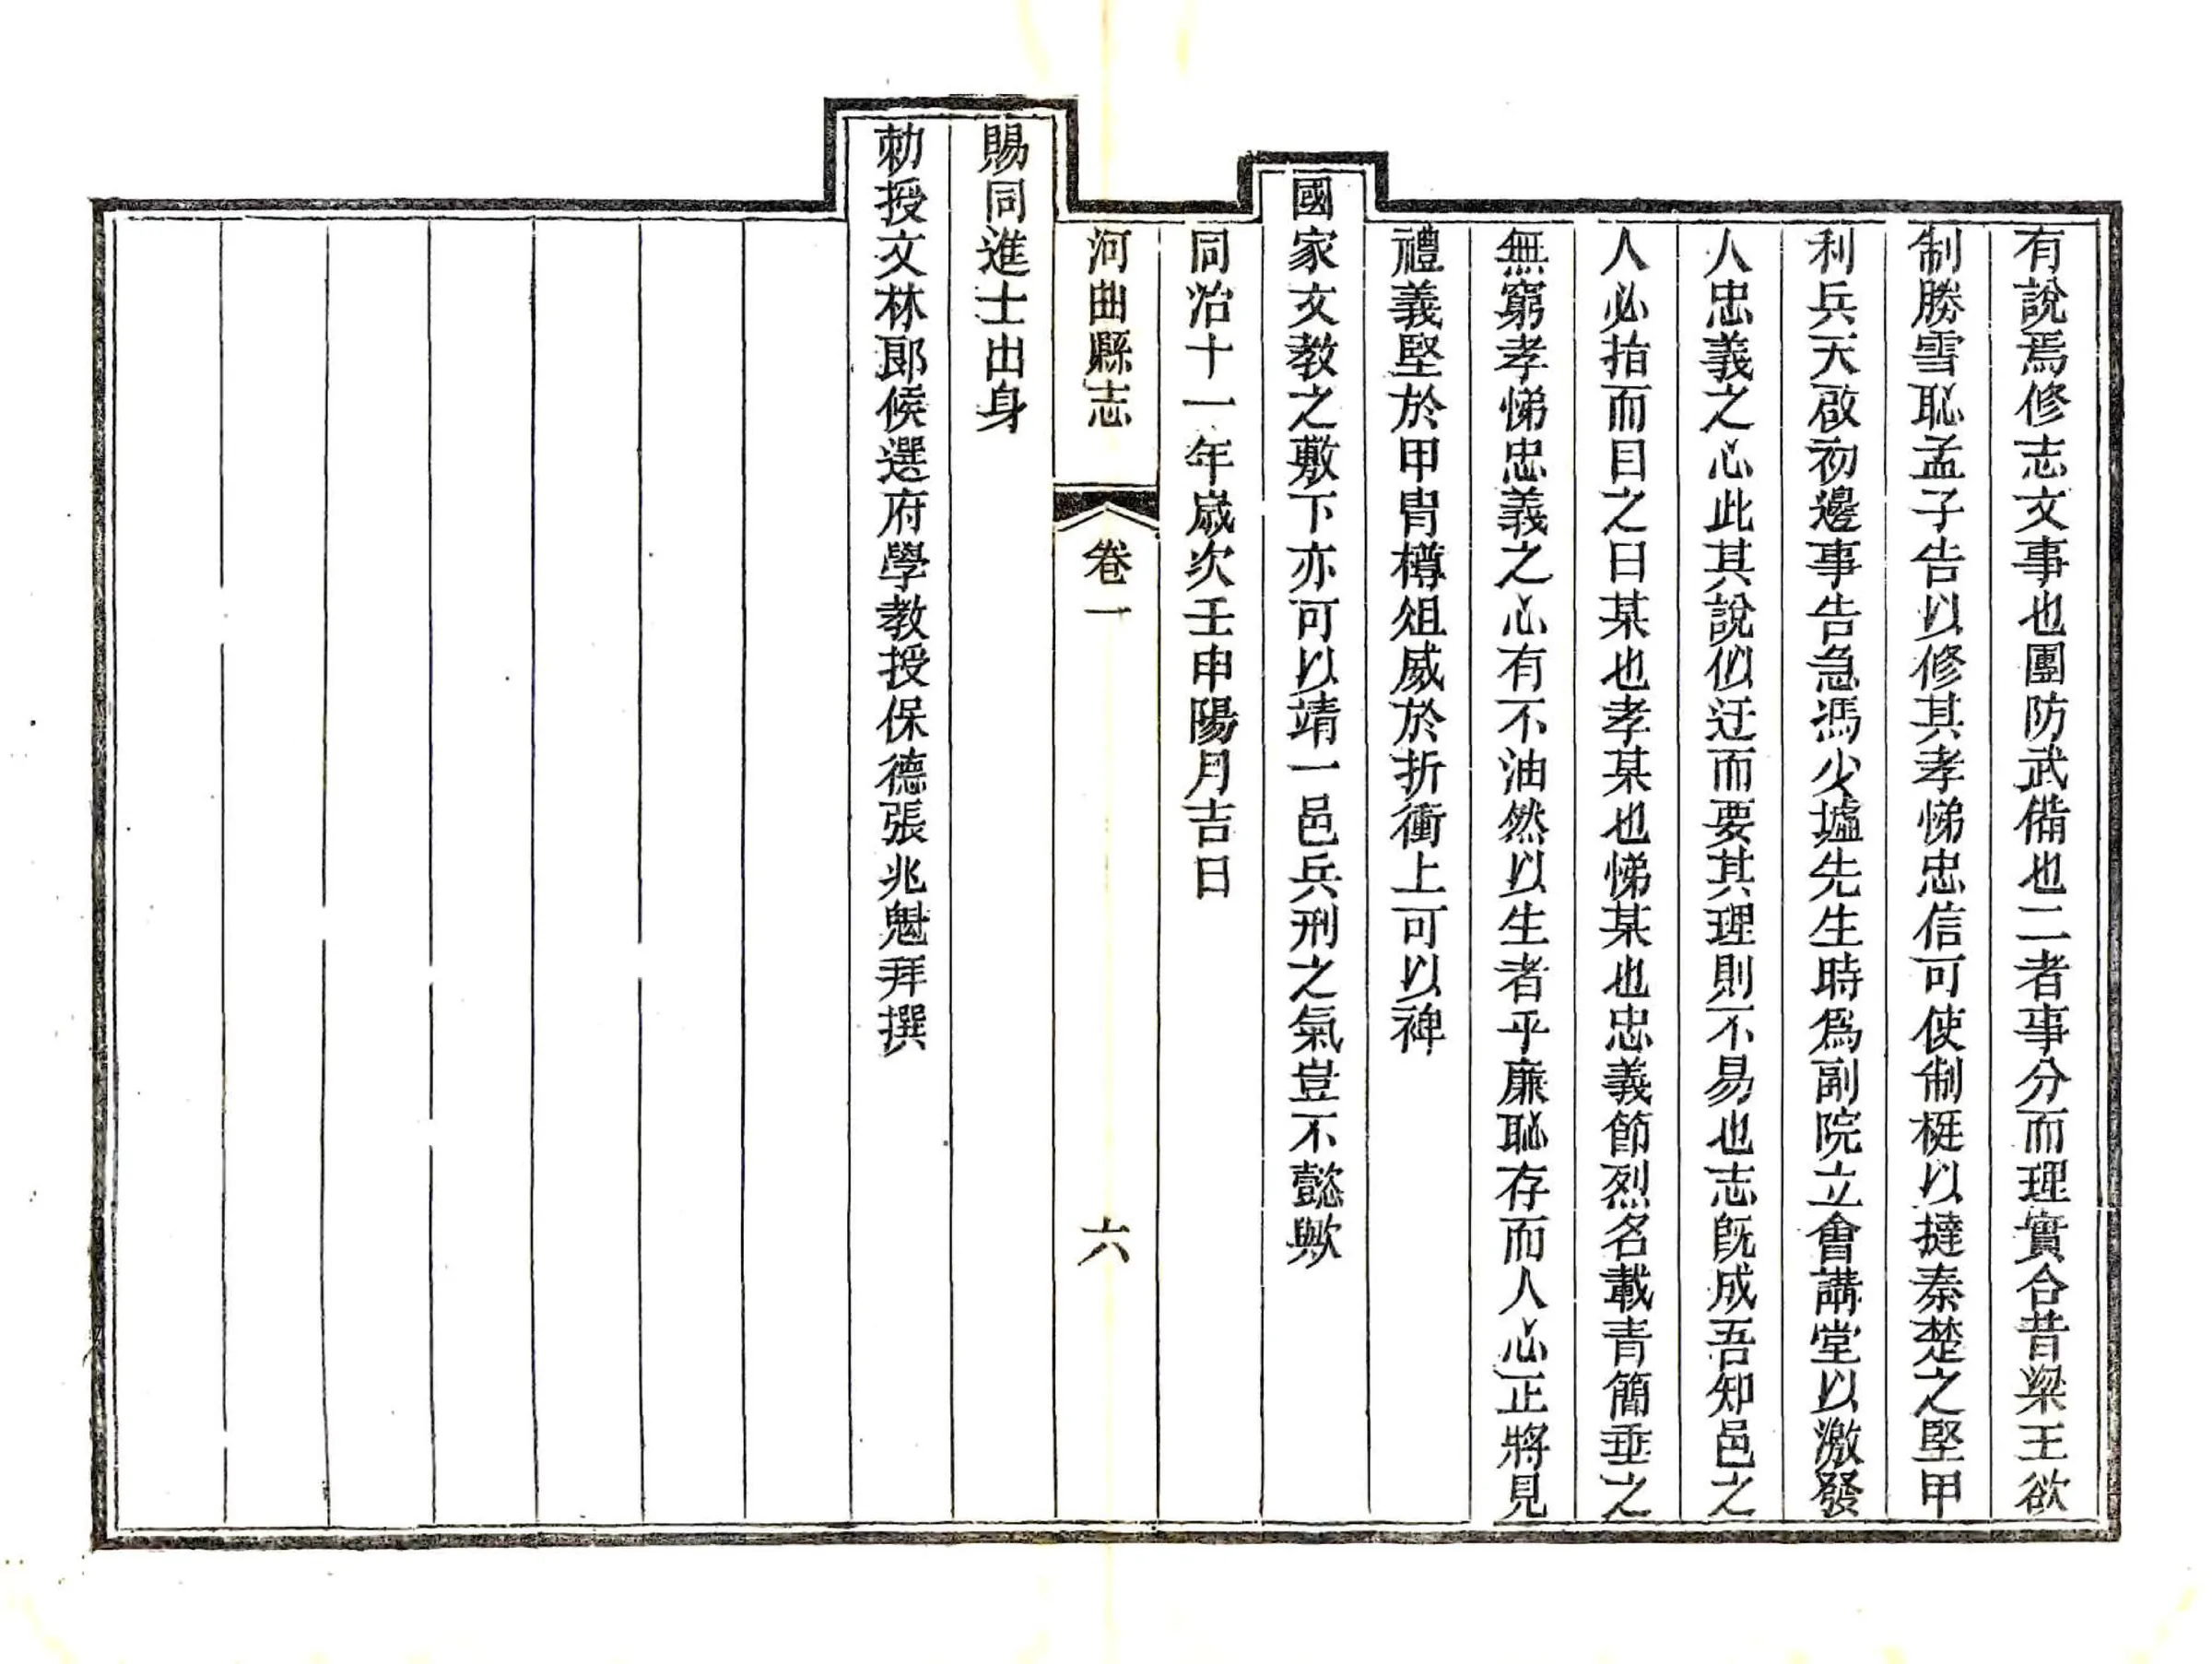 有說焉修志文事也團防武備也二者事分而理實合昔梁王欲
制勝雪恥孟子告以修其孝悌忠信可使制梃以撻秦楚之堅甲
利兵天啟初邊事告急馮少墟先生時爲副院立會講堂以激發
人忠義之心此其說似迂而要其理則不易也志既成吾知邑之
人必指而目之曰某也孝某也悌某也忠義節烈名載青簡垂之
無窮孝悌忠義之心有不油然以生者乎廉恥存而人心正將見
禮義堅於甲胄樽俎威於折衝上可以裨
國家文教之敷下亦可以靖一邑兵刑之氣豈不懿歟
同治十一年歲次壬申陽月吉日
河曲縣志 卷一 六
賜同進士出身
勅授文林郎候選府學教授保德張兆魁拜撰